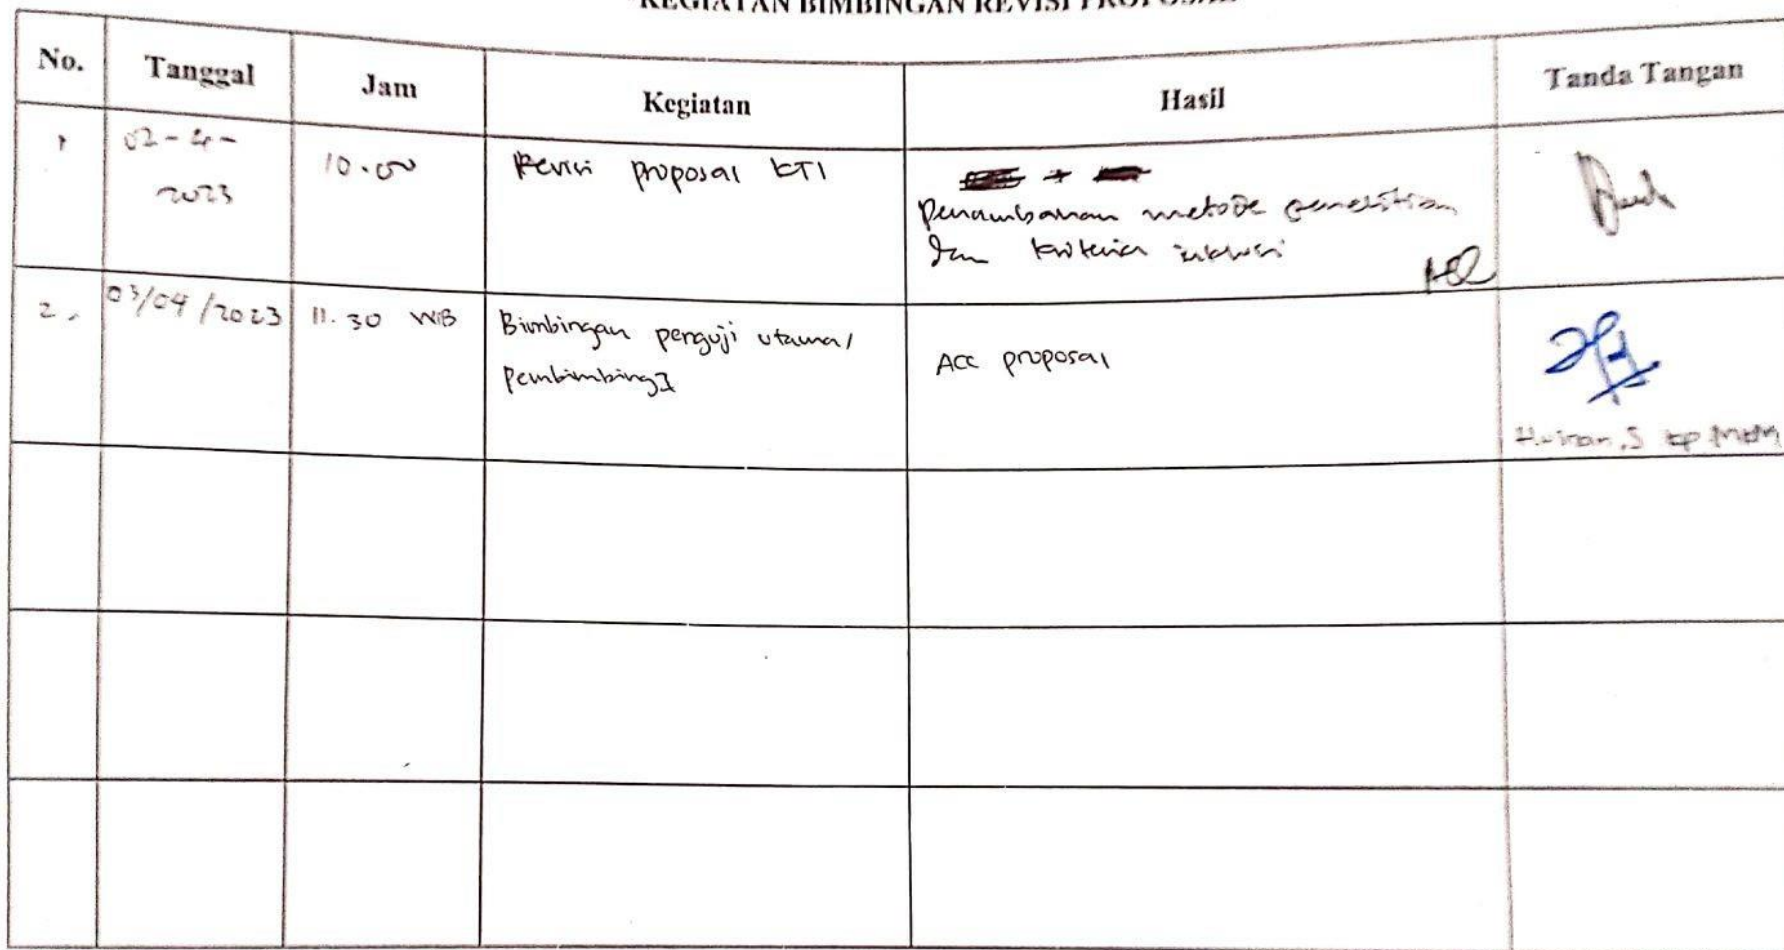 KEGIATAN BIMBINGAN REVISI PROPOSAL
No. Tanggal Jam Kegiatan Hasil Tanda Tangan
1 02-4-2023 10.00 Revisi proposal KTI
penambahan metode penelitian
dan kriteria inklusi
2. 03/04/2023 11.30 WIB Bimbingan penguji utama/
pembimbing I
Acc proposal